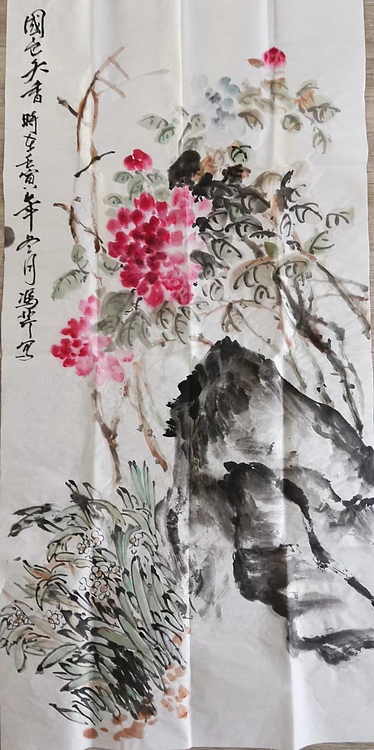 國色天香時在壬寅年冬月馮華寫